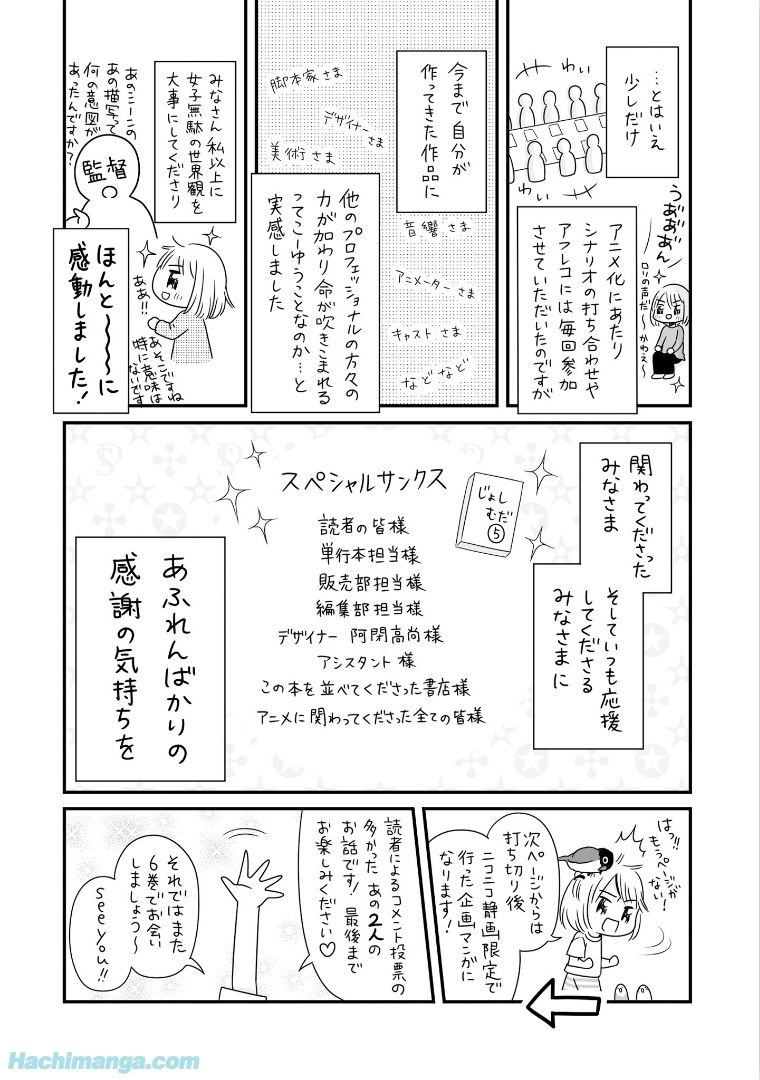 …とはいえ
少しだけ
わい
わい
アニメ化にあたり
シナリオの打ち合わせや
アフレコには毎回参加
させていただいたのですが
うあ゛あ゛あ゛ん
ロリの声だ〜かわえ〜
今まで自分が
作ってきた作品に
脚本家さま
デザイナーさま
美術さま
音響さま
アニメーターさま
キャストさま
などなど
他のプロフェッショナルの方々の
力が加わり命が吹きこまれる
ってこーゆうことなのか…と
実感しました
みなさん私以上に
女子無駄の世界観を
大事にしてくださり
あのシーンの
あの描写って
何の意図が
あったんですか?
監督
ああ!!
あそこですね
特に意味は
ないです
ほんと〜〜〜に
感動しました!
関わってくださった
みなさま
そしていつも応援
してくださる
みなさまに
じょし
むだ
⑤
スペシャルサンクス
読者の皆様
単行本担当様
販売部担当様
編集部担当様
デザイナー 阿閉高尚様
アシスタント様
この本を並べてくださった書店様
アニメに関わってくださった全ての皆様
あふれんばかりの
感謝の気持ちを
はっ!!
もうページが
ない!
次ページからは
打ち切り後
ニコニコ静画限定で
行った企画マンガに
なります!
読者によるコメント投票の
多かったあの2人の
お話です!最後まで
お楽しみください♡
それではまた
6巻でお会い
しましょう〜
see you!!
Hachimanga.com